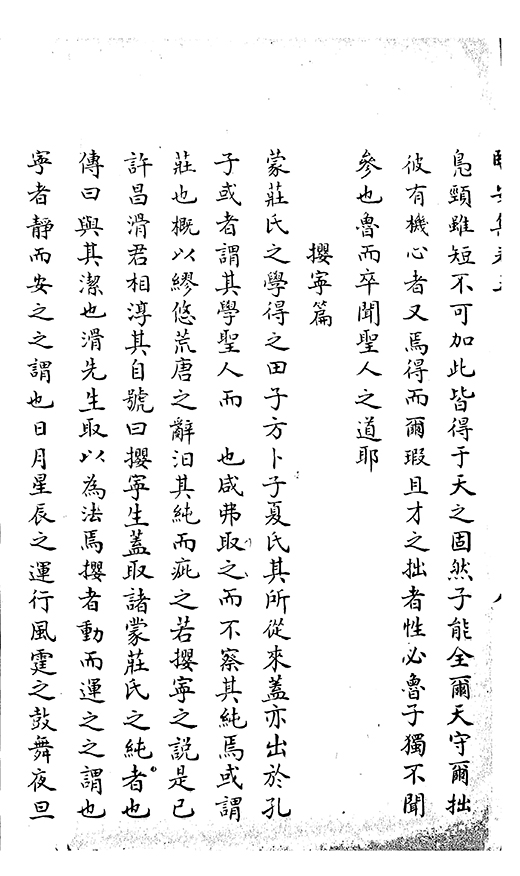 鳧頸雖短不可加此皆得于天之固然子能全爾天守爾拙
彼有機心者又焉得而爾瑕且才之拙者性必魯子獨不聞
參也魯而卒聞聖人之道耶
攖寧篇
蒙莊氏之學得之田子方卜子夏氏其所從來蓋亦出於孔
子或者謂其學聖人而　也咸弗取之而不察其純焉或謂
莊也概以繆悠荒唐之辭汨其純而疵之若攖寧之説是已
許昌滑君相淳其自號曰攖寧生蓋取諸蒙莊氏之純者也
傳曰與其潔也滑先生取以為法焉攖者動而運之之謂也
寧者靜而安之之謂也日月星辰之運行風霆之鼓舞夜旦